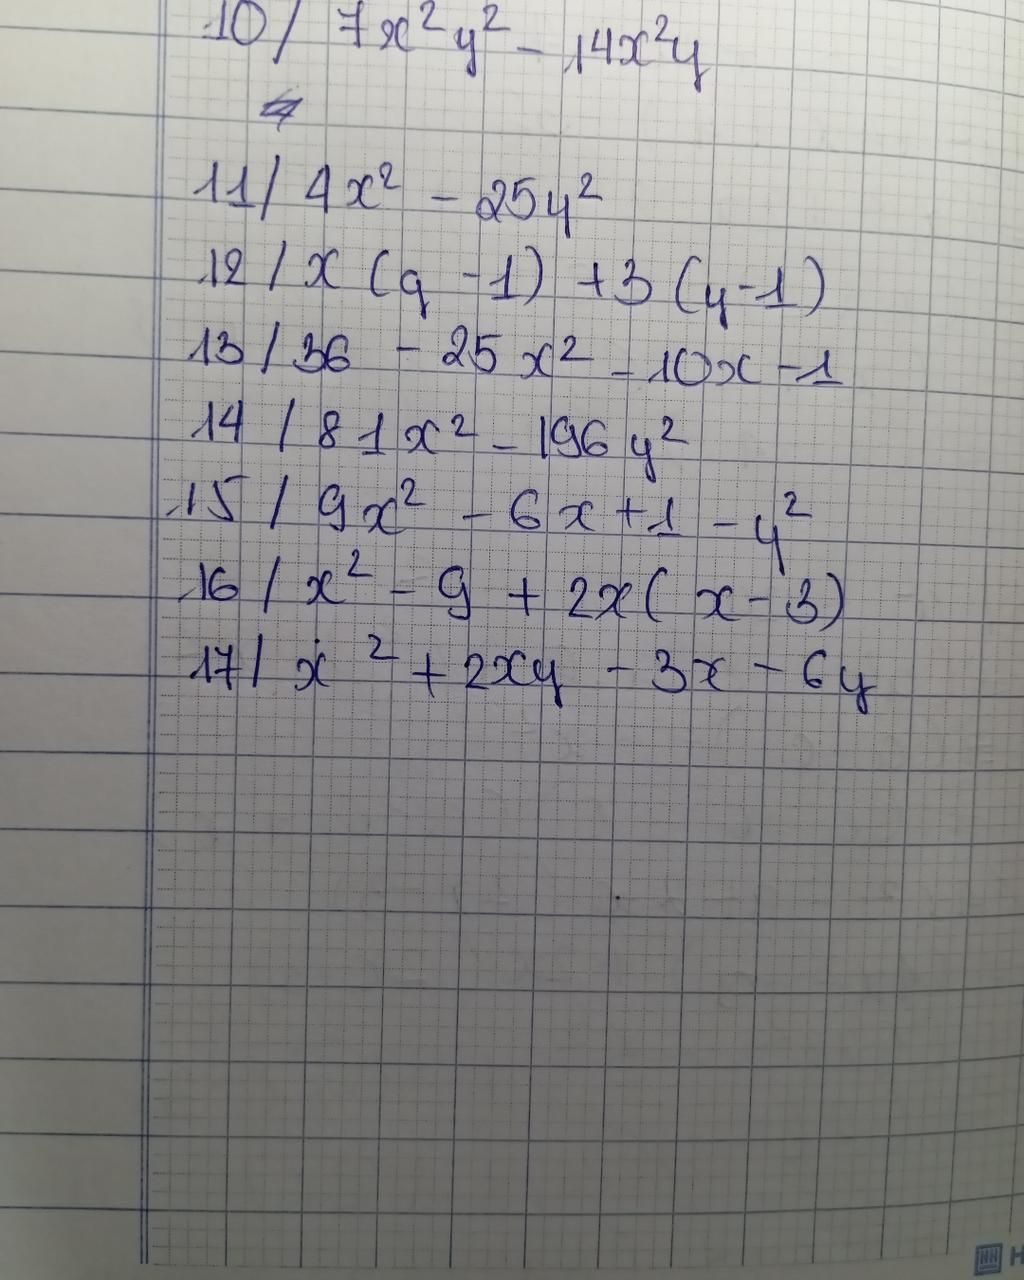 10/ 7x²y² - 14x²y
11/ 4x² - 25y²
12/ x (y - 1) + 3 (y - 1)
13/ 36 - 25x² - 10x - 1
14/ 81x² - 196y²
15/ 9x² - 6x + 1 - y²
16/ x² - 9 + 2x( x - 3)
17/ x² + 2xy - 3x - 6y